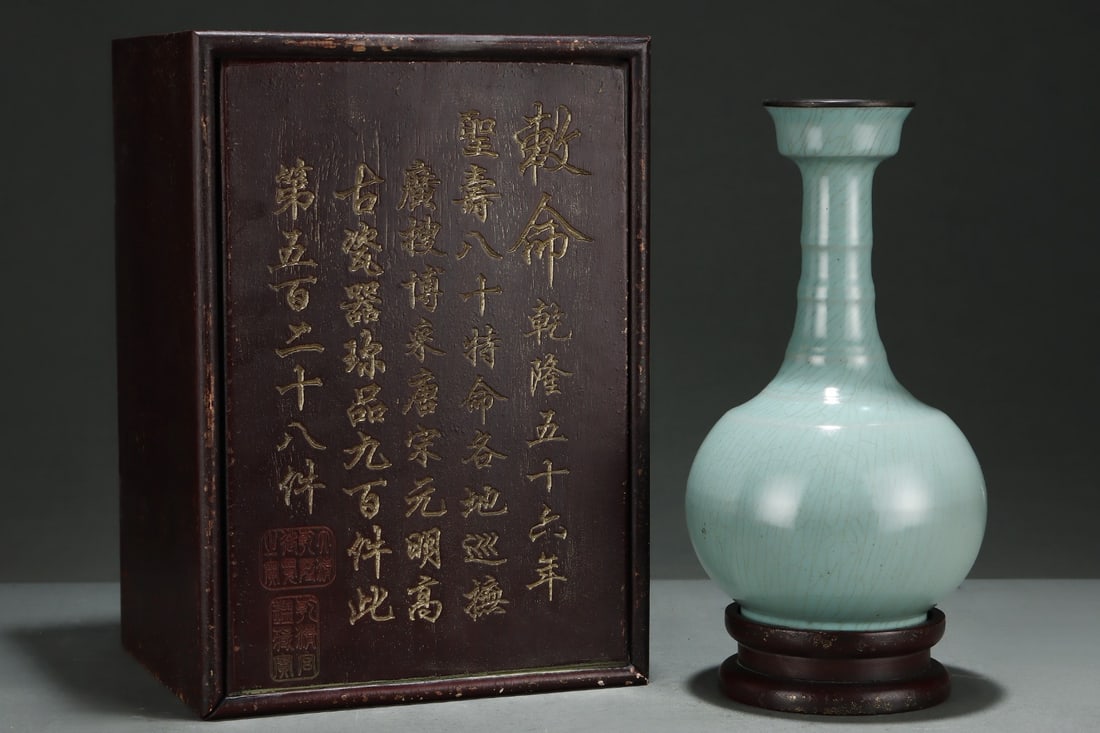 敕命乾隆五十六年
聖壽八十特命各地巡撫
廣搜博采唐宋元明高
古瓷器珍品九百件此
第五百二十八件
乾清宮